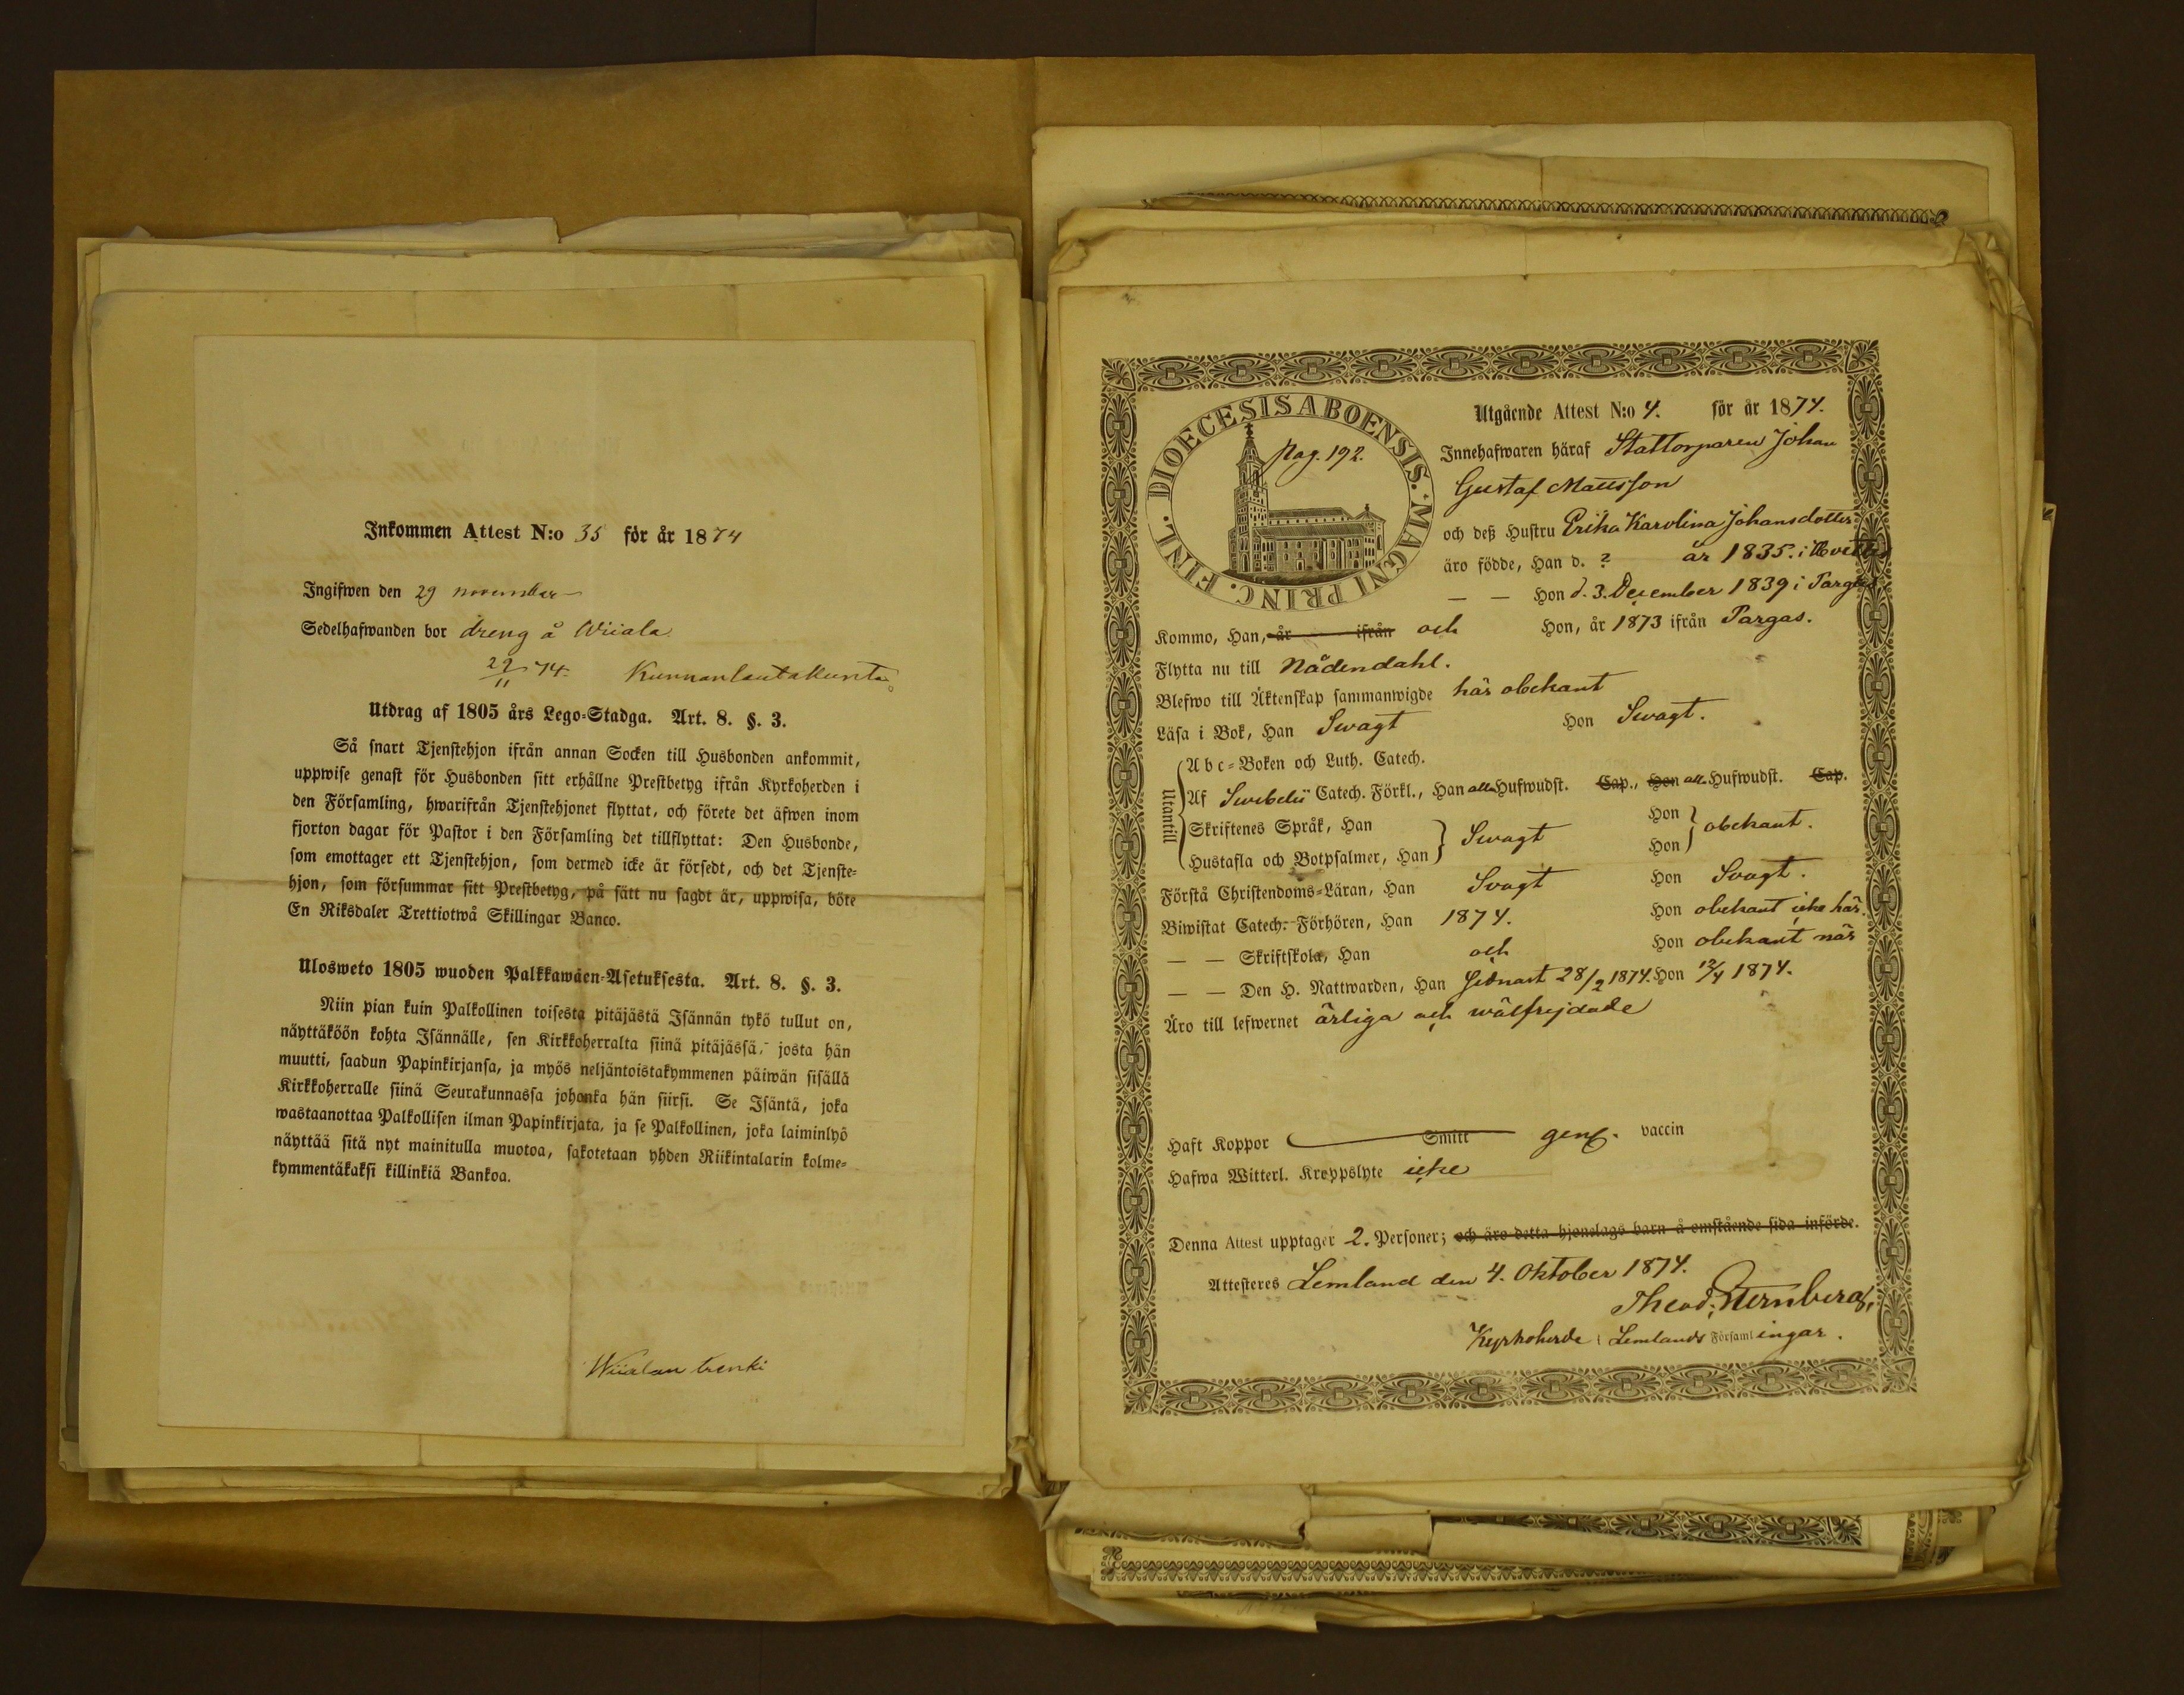 Inkommen Attest N:o 35 för år 1874
Ingifwen den 29 november
Sedelhafwanden bor dreng å Wiiala
29/11 74. Kunnanlautakunta
Utdrag af 1805 års Lego-Stadga. Art. 8. §. 3.
Så snart Tjenstehjon ifrån annan Socken till Husbonden ankommit,
uppwise genast för Husbonden sitt erhållne Prestbetyg ifrån Kyrkoherden i
den Församling, hwarifrån Tjenstehjonet flyttat, och förete det äfwen inom
fjorton dagar för Pastor i den Församling det tillflyttat: Den Husbonde,
som emottager ett Tjenstehjon, som dermed icke är försedt, och det Tjenste-
hjon, som försummar sitt Prestbetyg, på sätt nu sagdt är, uppwisa, böte
En Riksdaler Trettiotwå Skillingar Banco.
Ulosweto 1805 wuoden Palkkawäen-Asetuksesta. Art. 8. §. 3.
Niin pian kuin Palkollinen toisesta pitäjästä Isännän tykö tullut on,
näyttäköön kohta Isännälle, sen Kirkkoherralta siinä pitäjässä, josta hän
muutti, saadun Papinkirjansa, ja myös neljäntoistakymmenen päiwän sisällä
Kirkkoherralle siinä Seurakunnassa johonka hän siirsi. Se Isäntä, joka
wastaanottaa Palkollisen ilman Papinkirjata, ja se Palkollinen, joka laiminlyö
näyttää sitä nyt mainitulla muotoa, sakotetaan yhden Riikintalarin kolme-
kymmentäkaksi killinkiä Bankoa.
Wiialan trenki
DIOECESIS ABOENSIS. MAGNI PRINC. FINL.
Pag. 192.
Utgående Attest N:o 4. för år 1874.
Innehafwaren häraf Stattorparen Johan
Gustaf Mattsson
och deß Hustru Erika Karolina Johansdotter
äro födde, Han d. ? år 1835. i
— — Hon d. 3. December 1839 i Pargas
Kommo, Han, år ifrån och Hon, år 1873 ifrån Pargas.
Flytta nu till Nådendahl.
Blefwo till Äktenskap sammanwigde här obekant
Läsa i Bok, Han Swagt Hon Swagt.
Utantill
Abc-Boken och Luth. Catech.
Af Swebelii Catech. Förkl., Han alla Hufwudst. Cap., Hon alla Hufwudst. Cap.
Skriftenes Språk, Han Hon
Swagt obekant.
Hustafla och Botpsalmer, Han Hon
Förstå Christendoms-Läran, Han Svagt Hon Svagt.
Biwistat Catech. Förhören, Han 1874. Hon obekant icke här.
— — Skriftskola, Han och Hon obekant när
— — Den H. Nattwarden, Han sednast 28/2 1874. Hon 12/4 1874.
Äro till lefwernet ärliga och wälfrejdade
Haft Koppor Smitt genom vaccin
Hafwa Witterl. Kroppslyte icke
Denna Attest upptager 2. Personer; och äro detta hjonelags barn å omstående sida införde.
Attesteres Lemland den 4. Oktober 1874.
Theod. Sternberg,
Kyrkoherde i Lemlands Församlingar.